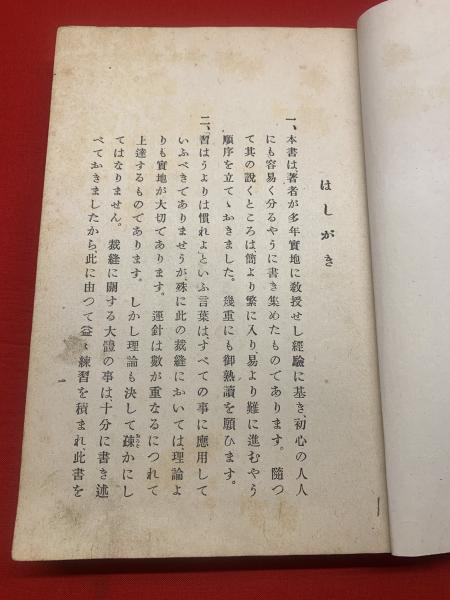 はしがき
一、本書は、著者が多年實地に敎授せし經驗に基き、初心の人人
にも容易く分るやうに書き集めたものであります。隨つ
て其の說くところは、簡より繁に入り易より難に進むやう
順序を立てゝおきました。幾重にも御熟讀を願ひます。
二、習はうよりは慣れよといふ言葉はすべての事に應用して
いふべきでありませうが、殊に此の裁縫においては、理論よ
りも實地が大切であります。運針は數が重なるにつれて
上達するものであります。しかし理論も決して疎かにし
てはなりません。裁縫に關する大體の事は十分に書き述
べておきましたから、此に由つて益〻練習を積まれ此書を
一